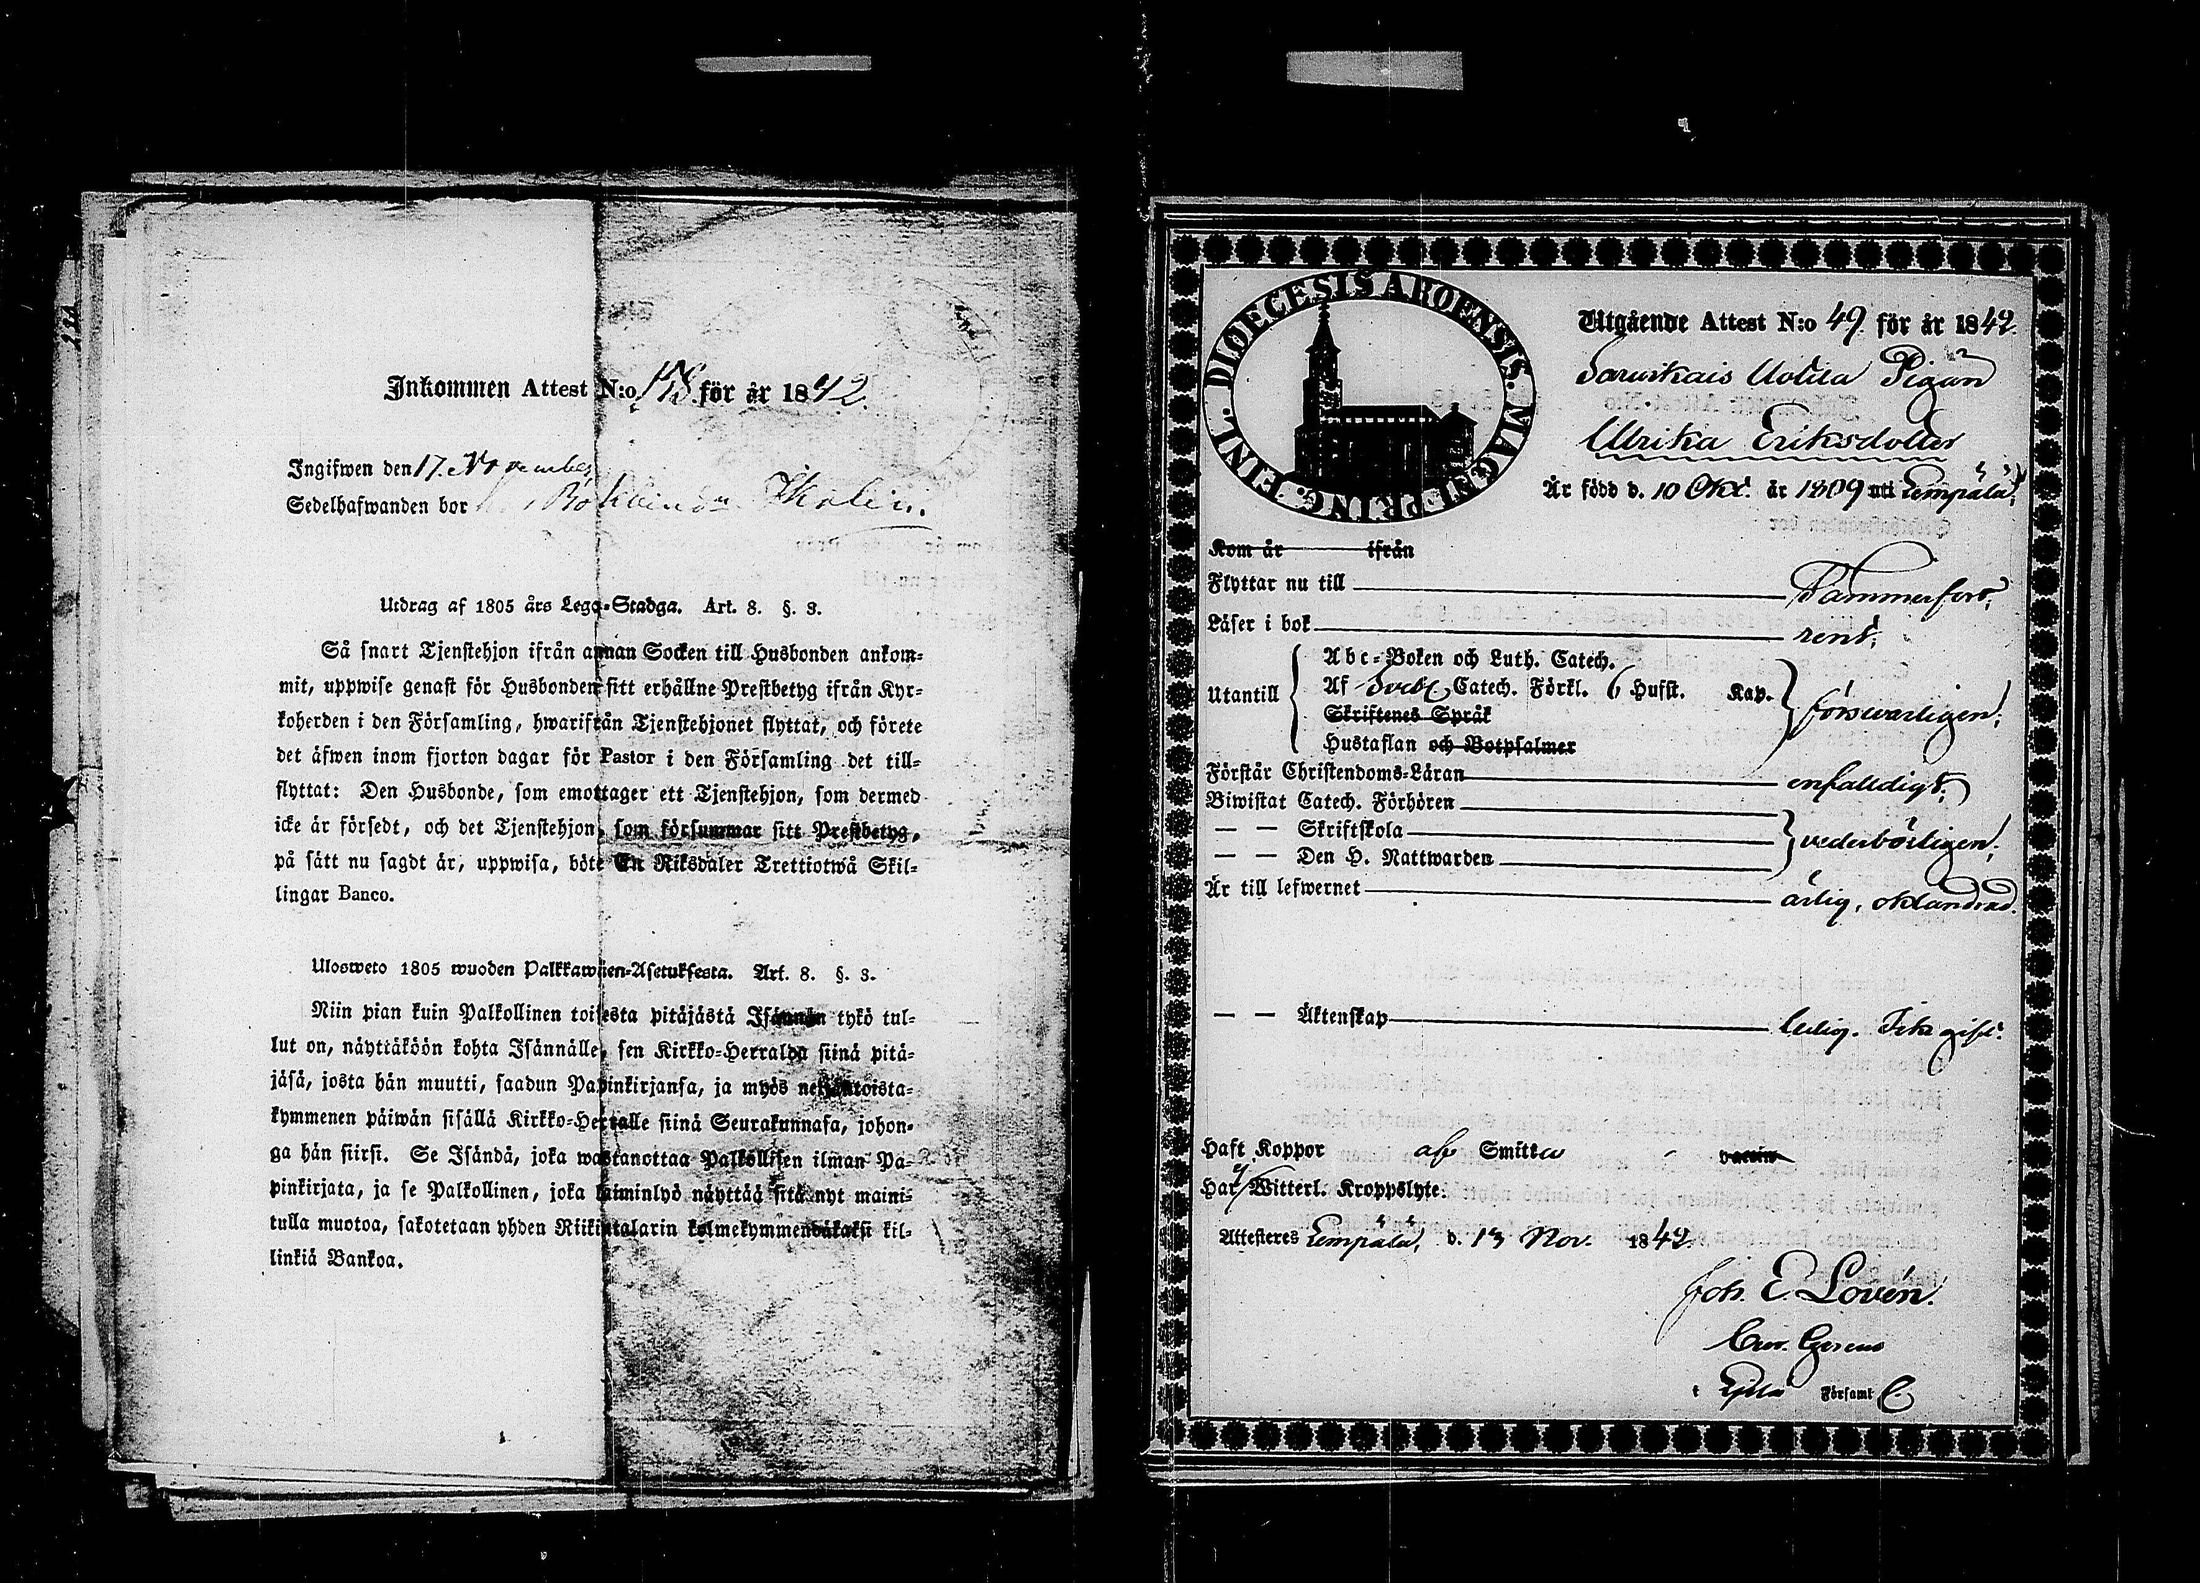 Inkommen Attest N:o 158. för år 1842.
Ingifwen den 17. November
Sedelhafwanden bor
Utdrag af 1805 års Lego-Stadga. Art. 8. §. 8.
Så snart Tjenstehjon ifrån annan Socken till Husbonden ankom-
mit, uppwise genast för Husbonden sitt erhållne Prestbetyg ifrån Kyr-
koherden i den Församling, hwarifrån Tjenstehjonet flyttat, och förete
det äfwen inom fjorton dagar för Pastor i den Församling det till-
flyttat: Den Husbonde, som emottager ett Tjenstehjon, som dermed
icke är försedt, och det Tjenstehjon, som försummar sitt Prestbetyg,
på sätt nu sagdt är, uppwisa, böte En Riksdaler Trettiotwå Skil-
lingar Banco.
Ulosweto 1805 wuoden Palkkawäen-Asetuksesta. Art. 8. §. 8.
Niin pian kuin Palkollinen toisesta pitäjästä Isännän tykö tul-
lut on, näyttäköön kohta Isännälle, sen Kirkko-Herralda siinä pitä-
jäsä, josta hän muutti, saadun Papinkirjansa, ja myös neljäntoista-
kymmenen päiwän sisällä Kirkko-Herralle siinä Seurakunnasa, johon-
ga hän siirsi. Se Isändä, joka wastanottaa Palkollisen ilman Pa-
pinkirjata, ja se Palkollinen, joka laiminlyö näyttää sitä nyt maini-
tulla muotoa, sakotetaan yhden Riikintalarin kolmekymmendäkaksi kil-
linkiä Bankoa.
DIOECESIS ABOENSIS. MAGNI PRING. FINL.
Utgående Attest N:o 49. för år 1842.
Uotila Pigan
Ulrika Eriksdotter
Är född d. 10 Okt. år 1809 uti Lempälä,
Kom år ifrån
Flyttar nu till Tammerfors,
Läser i bok rent,
Utantill
Abc-Boken och Luth. Catech.
Af Svebel. Catech. Förkl. 6 Hufst. Kap.
Skriftenes Språk
Hustaflan och Botpsalmer
försvarligen,
Förstår Christendoms-Läran enfaldigt,
Biwistat Catech. Förhören
— — Skriftskola
— — Den H. Nattwarden
vederbörligen,
Är till lefwernet ärlig, oklandrad.
— — Äktenskap ledig. Icke gift.
Haft Koppor af Smitta vaccin
Har Witterl. Kroppslyte.
Attesteres Lempälä, d. 13 Nov. 1842.
Joh. E. Lovén.
Församl